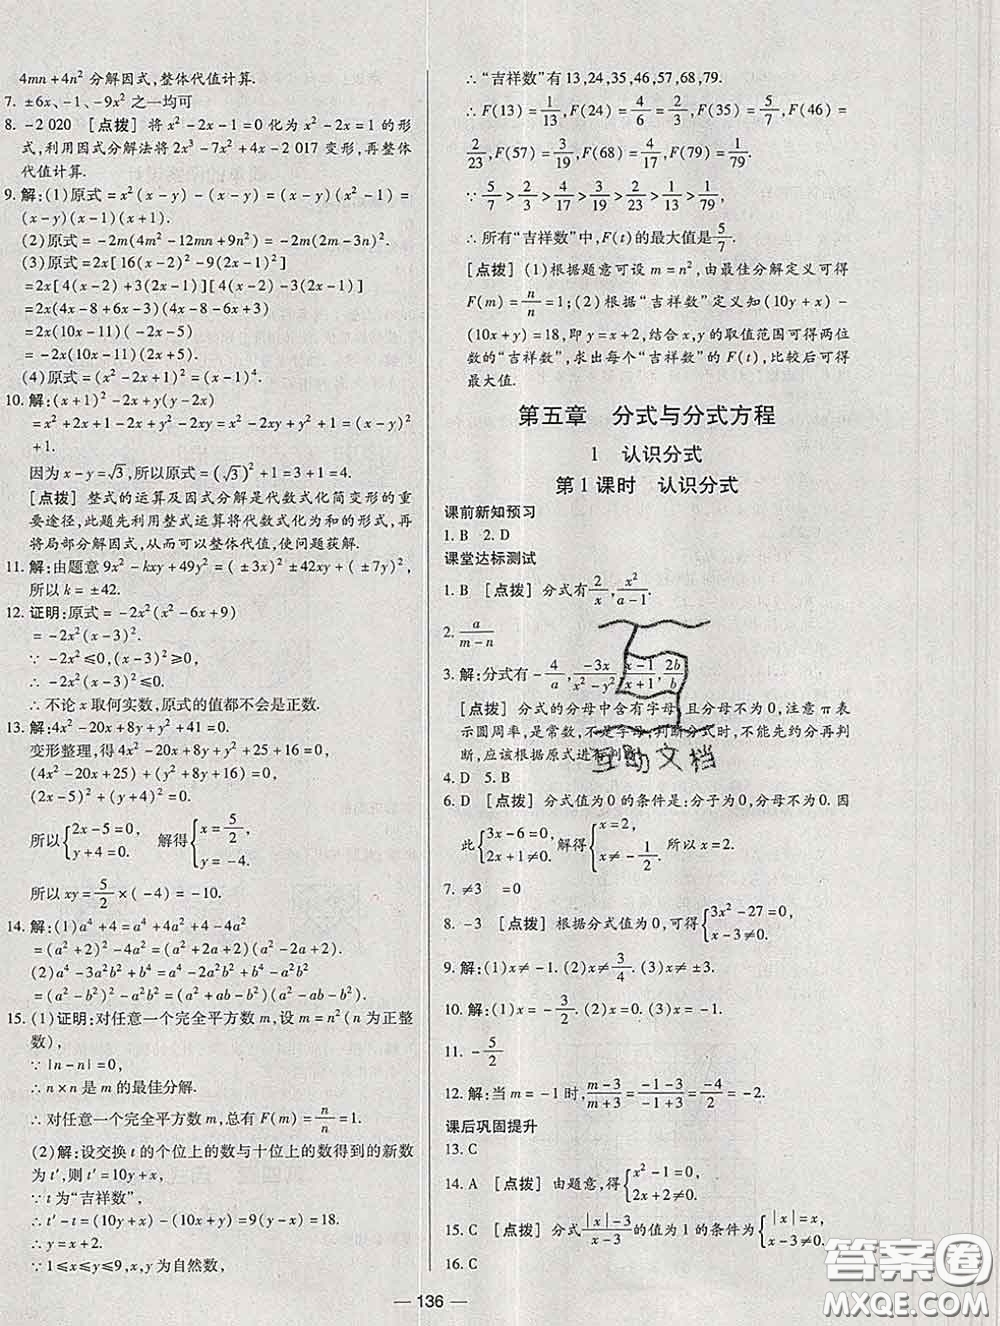 4mn+4n²分解因式,整体代值计算.
7. ±6x、-1、-9x²之一均可
8. -2 020 [点拨] 将x²-2x-1=0化为x²-2x=1的形
式,利用因式分解法将2x³-7x²+4x-2 017变形,再整体
代值计算.
9. 解:(1)原式=x²(x-y)-(x-y)=(x-y)(x²-1)=
(x-y)(x-1)(x+1).
(2)原式=-2m(4m²-12mn+9n²)=-2m(2m-3n)².
(3)原式=2x[16(x-2)²-9(2x-1)²]
=2x[4(x-2)+3(2x-1)][4(x-2)-3(2x-1)]
=2x(4x-8+6x-3)(4x-8-6x+3)
=2x(10x-11)(-2x-5)
=-2x(10x-11)(2x+5).
(4)原式=(x²-2x+1)²=(x-1)⁴.
10. 解:(x+1)²-2x+y(y-2x)
=x²+2x+1-2x+y²-2xy=x²+y²-2xy+1=(x-y)²
+1.
因为x-y=√3,所以原式=(√3)²+1=3+1=4.
[点拨] 整式的运算及因式分解是代数式化简变形的重
要途径,此题先利用整式运算将代数式化为和的形式,再
将局部分解因式,从而可以整体代值,使问题获解.
11. 解:由题意9x²-kxy+49y²=(±3x)²±42xy+(±7y)²,
所以k=±42.
12. 证明:原式=-2x²(x²-6x+9)
=-2x²(x-3)².
∵-2x²≤0,(x-3)²≥0,
∴-2x²(x-3)²≤0.
∴不论x取何实数,原式的值都不会是正数.
13. 解:4x²-20x+8y+y²+41=0.
变形整理,得4x²-20x+8y+y²+25+16=0,
(4x²-20x+25)+(y²+8y+16)=0,
(2x-5)²+(y+4)²=0.
所以{2x-5=0, y+4=0. 解得{x=5/2, y=-4.
所以xy=5/2×(-4)=-10.
14. 解:(1)a⁴+4=a⁴+4a²+4-4a²
=(a²+2)²-4a²=(a²+2a+2)(a²-2a+2).
(2)a⁴-3a²b²+b⁴=a⁴-2a²b²+b⁴-a²b²
=(a²-b²)²-a²b²=(a²-b²+ab)(a²-ab-b²).
15. (1)证明:对任意一个完全平方数m,设m=n²(n为正整
数),
∵|n-n|=0,
∴n×n是m的最佳分解.
∴对任意一个完全平方数m,总有F(m)=n/n=1.
(2)解:设交换t的个位上的数与十位上的数得到的新数
为t′,则t′=10y+x,
∵t为“吉祥数”,
∴t′-t=(10y+x)-(10x+y)=9(y-x)=18.
∴y=x+2.
∵1≤x≤y≤9,x,y为自然数,
∴“吉祥数”有13,24,35,46,57,68,79.
∴F(13)=1/13,F(24)=4/6=2/3,F(35)=5/7,F(46)=
2/23,F(57)=3/19,F(68)=4/17,F(79)=1/79.
∵5/7>2/3>4/17>3/19>2/23>1/13>1/79,
∴所有“吉祥数”中,F(t)的最大值是5/7.
[点拨] (1)根据题意可设m=n²,由最佳分解定义可得
F(m)=n/n=1;(2)根据“吉祥数”定义知(10y+x)-
(10x+y)=18,即y=x+2,结合x,y的取值范围可得两位
数的“吉祥数”,求出每个“吉祥数”的F(t),比较后可得
最大值.
第五章 分式与分式方程
1 认识分式
第1课时 认识分式
课前新知预习
1. B 2. D
课堂达标测试
1. B [点拨] 分式有2/x,x²/(a-1).
2. a/(m-n)
3. 解:分式有-4/a,-3x/(x²-y²),(x-1)/(x+1),2b/b.
[点拨] 分式的分母中含有字母,且分母不为0,注意π表
示圆周率,是常数,不是字母;判断分式时,不能先约分再判
断,应该根据原式进行判断.
4. D 5. B
6. D [点拨] 分式值为0的条件是:分子为0,分母不为0.因
此{3x-6=0, 2x+1≠0. 解得{x=2, x≠-1/2. 所以x=2.
7. ≠3 =0
8. -3 [点拨] 根据分式值为0,可得{3x²-27=0, x-3≠0.
9. 解:(1)x≠-1.(2)x≠3/4.(3)x≠±3.
10. 解:(1)x=-3/2.(2)x=0.(3)x=-1.
11. -5/2
12. 解:当m=-1时,(m-3)/(m+3)=(-1-3)/(-1+3)=-4/2=-2.
课后巩固提升
13. C
14. A [点拨] 由题意,得{x²-1=0, 2x+2≠0.
15. C [点拨] 分式(|x|-3)/(x-3)的值为1的条件为{|x|=x, x-3≠0.
16. C
互助文档
答案圈
MXQE.COM
— 136 —